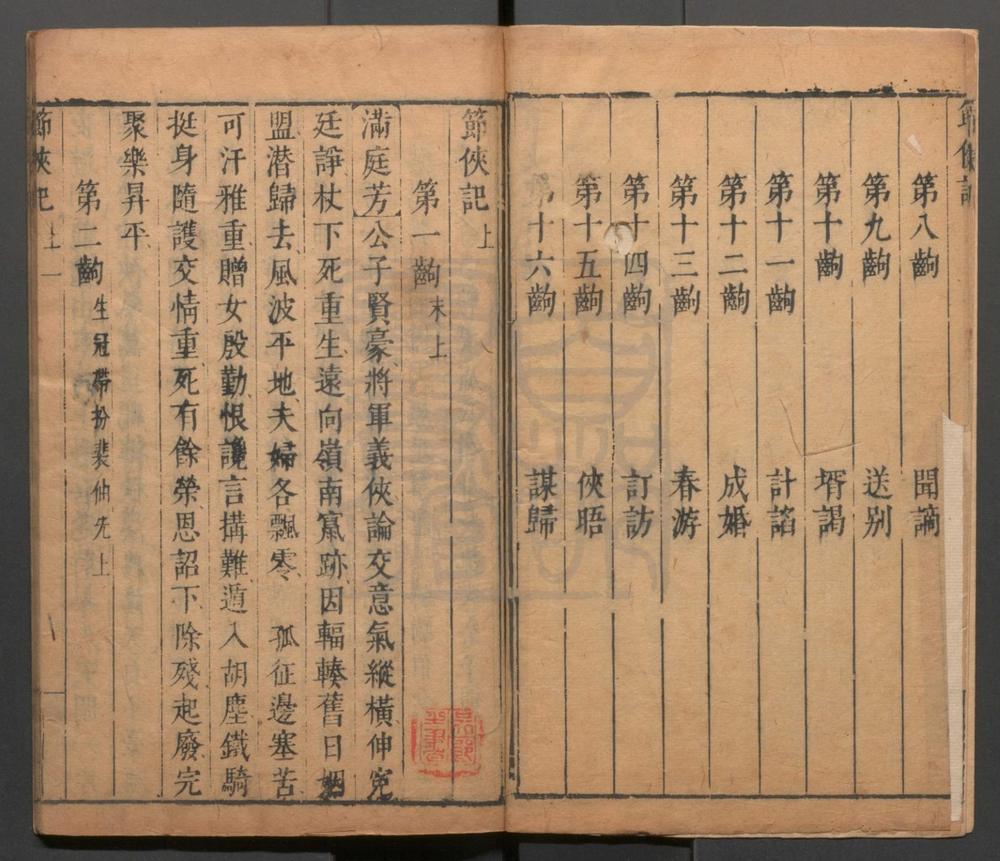 節俠記
第八齣 聞謫
第九齣 送别
第十齣 壻謁
第十一齣 計謟
第十二齣 成婚
第十三齣 春游
第十四齣 訂訪
第十五齣 俠晤
第十六齣 謀歸
節俠記 上
第一齣 末上
【滿庭芳】公子賢豪、將軍義俠、論交意氣縱橫、伸寃
廷諍、杖下死重生、遠向嶺南竄跡、因輻輳舊日姻
盟、潜歸去、風波平地、夫婦各飄零、 孤征邊塞苦、
可汗雅重、贈女殷勤、恨讒言搆難、遁入胡塵、鐵騎
挺身隨護、交情重、死有餘榮、恩詔下、除殘起廢、完
聚樂昇平、
第二齣 生冠帶扮裴伷先上
節俠記 上 一